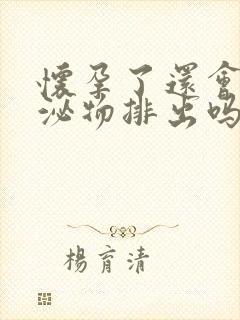 懷孕了還會
泌物排出吗
楊育清